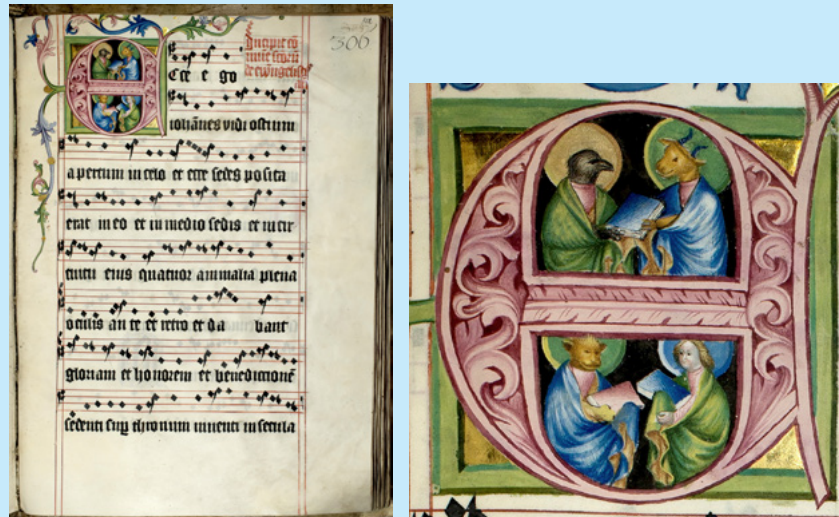 306
Incipit cō
mune sctorū
de ewangelist
ECce e go
iohānes vidi ostium
apertum in celo et ecce sedes posita
erat in eo et in medio sedis et in cir
cuitu eius quatuor animalia plena
oculis an te et retro et da bant
gloriam et honorem et benedictionē
sedenti sup thronum viuenti in secula